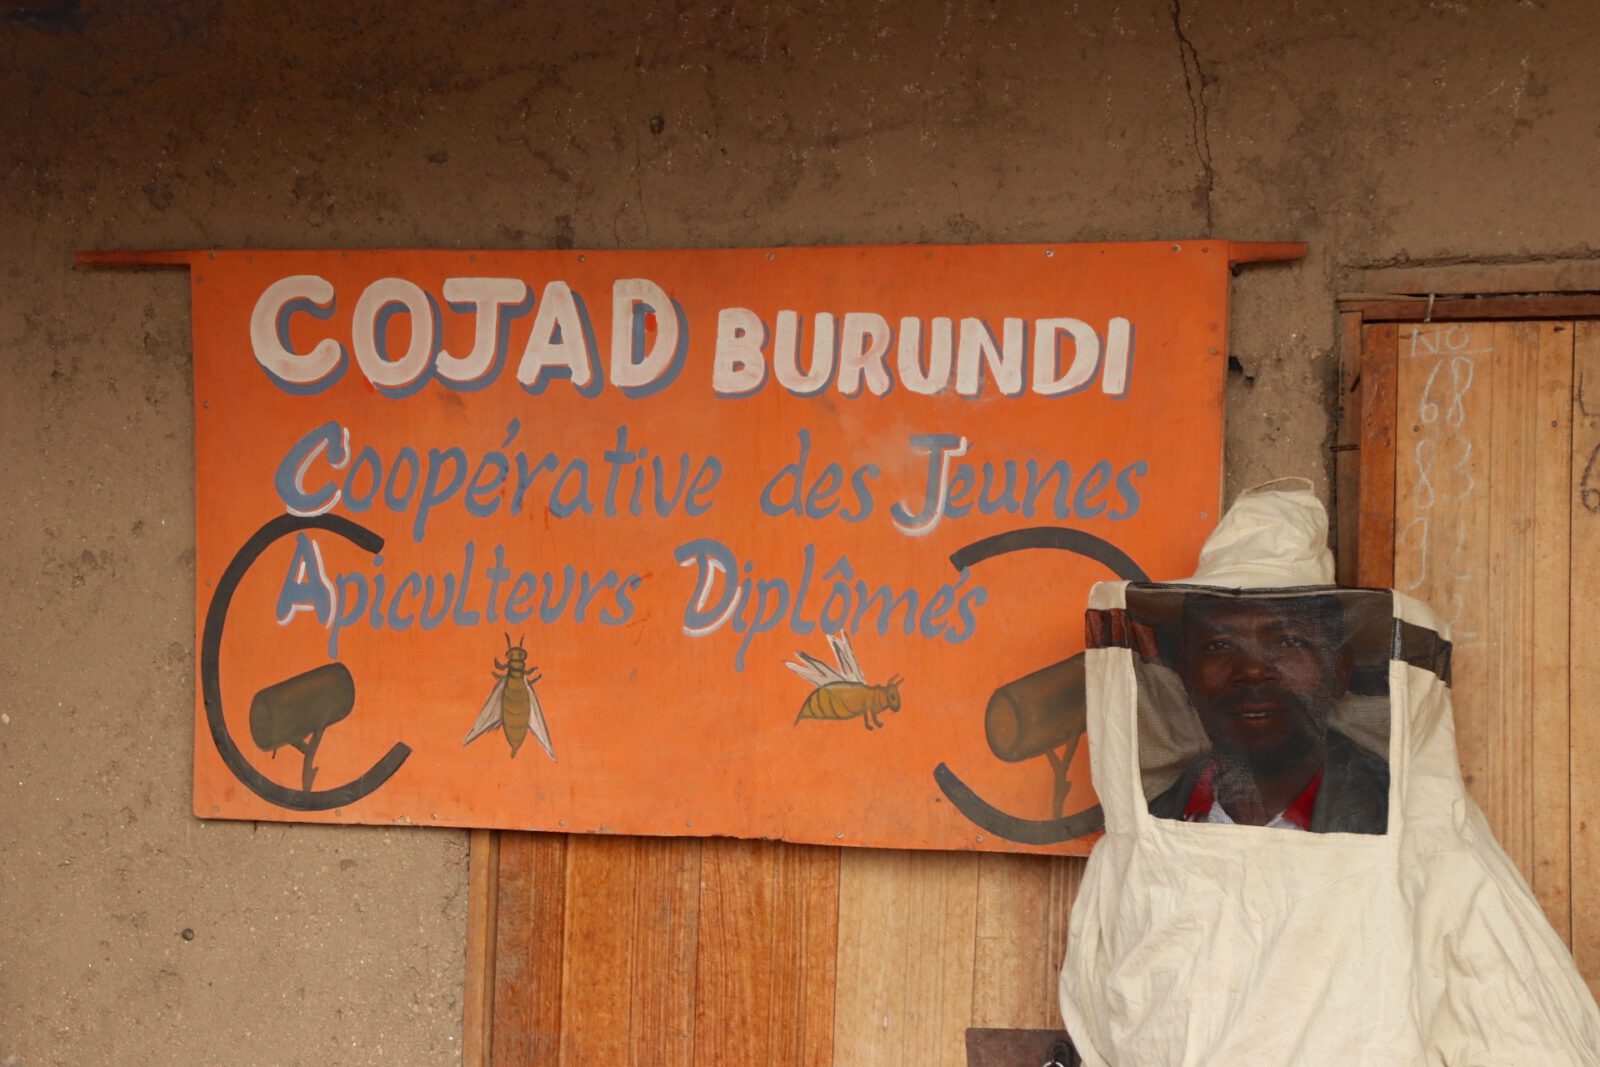 COJAD BURUNDI
Coopérative des Jeunes
Apiculteurs Diplômés
NO
68
83